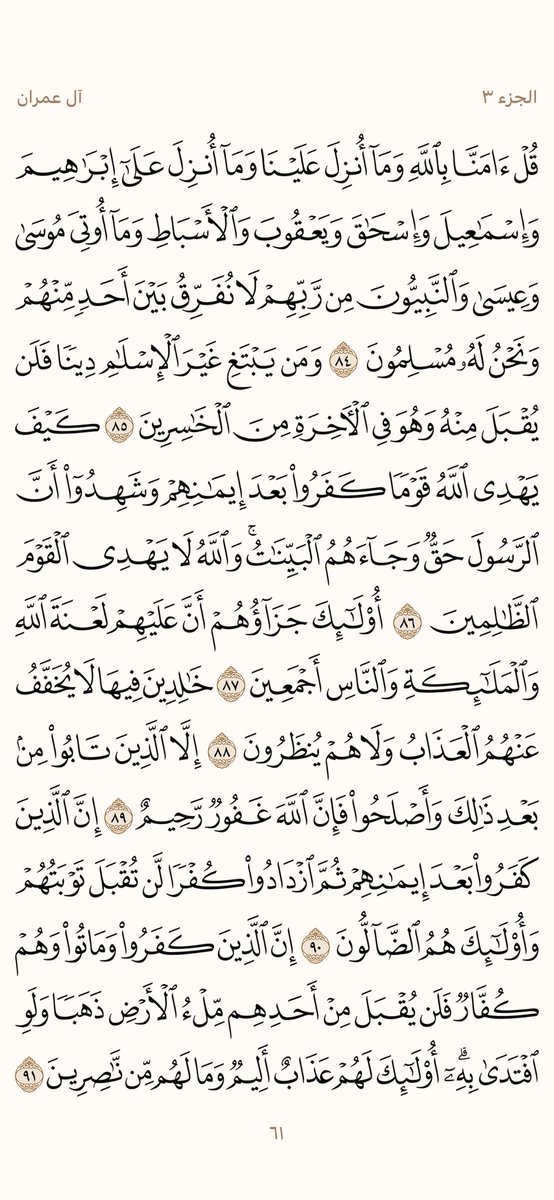 الجزء ٣
آل عمران
قُلْ ءَامَنَّا بِٱللَّهِ وَمَآ أُنزِلَ عَلَيْنَا وَمَآ أُنزِلَ عَلَىٰٓ إِبْرَٰهِيمَ
وَإِسْمَٰعِيلَ وَإِسْحَٰقَ وَيَعْقُوبَ وَٱلْأَسْبَاطِ وَمَآ أُوتِىَ مُوسَىٰ
وَعِيسَىٰ وَٱلنَّبِيُّونَ مِن رَّبِّهِمْ لَا نُفَرِّقُ بَيْنَ أَحَدٍ مِّنْهُمْ
وَنَحْنُ لَهُۥ مُسْلِمُونَ ٨٤ وَمَن يَبْتَغِ غَيْرَ ٱلْإِسْلَٰمِ دِينًا فَلَن
يُقْبَلَ مِنْهُ وَهُوَ فِى ٱلْءَاخِرَةِ مِنَ ٱلْخَٰسِرِينَ ٨٥ كَيْفَ
يَهْدِى ٱللَّهُ قَوْمًا كَفَرُوا۟ بَعْدَ إِيمَٰنِهِمْ وَشَهِدُوٓا۟ أَنَّ
ٱلرَّسُولَ حَقٌّ وَجَآءَهُمُ ٱلْبَيِّنَٰتُ ۚ وَٱللَّهُ لَا يَهْدِى ٱلْقَوْمَ
ٱلظَّٰلِمِينَ ٨٦ أُو۟لَٰٓئِكَ جَزَآؤُهُمْ أَنَّ عَلَيْهِمْ لَعْنَةَ ٱللَّهِ
وَٱلْمَلَٰٓئِكَةِ وَٱلنَّاسِ أَجْمَعِينَ ٨٧ خَٰلِدِينَ فِيهَا لَا يُخَفَّفُ
عَنْهُمُ ٱلْعَذَابُ وَلَا هُمْ يُنظَرُونَ ٨٨ إِلَّا ٱلَّذِينَ تَابُوا۟ مِنۢ
بَعْدِ ذَٰلِكَ وَأَصْلَحُوا۟ فَإِنَّ ٱللَّهَ غَفُورٌ رَّحِيمٌ ٨٩ إِنَّ ٱلَّذِينَ
كَفَرُوا۟ بَعْدَ إِيمَٰنِهِمْ ثُمَّ ٱزْدَادُوا۟ كُفْرًا لَّن تُقْبَلَ تَوْبَتُهُمْ
وَأُو۟لَٰٓئِكَ هُمُ ٱلضَّآلُّونَ ٩٠ إِنَّ ٱلَّذِينَ كَفَرُوا۟ وَمَاتُوا۟ وَهُمْ
كُفَّارٌ فَلَن يُقْبَلَ مِنْ أَحَدِهِم مِّلْءُ ٱلْأَرْضِ ذَهَبًا وَلَوِ
ٱفْتَدَىٰ بِهِۦٓ ۗ أُو۟لَٰٓئِكَ لَهُمْ عَذَابٌ أَلِيمٌ وَمَا لَهُم مِّن نَّٰصِرِينَ ٩١
٦١